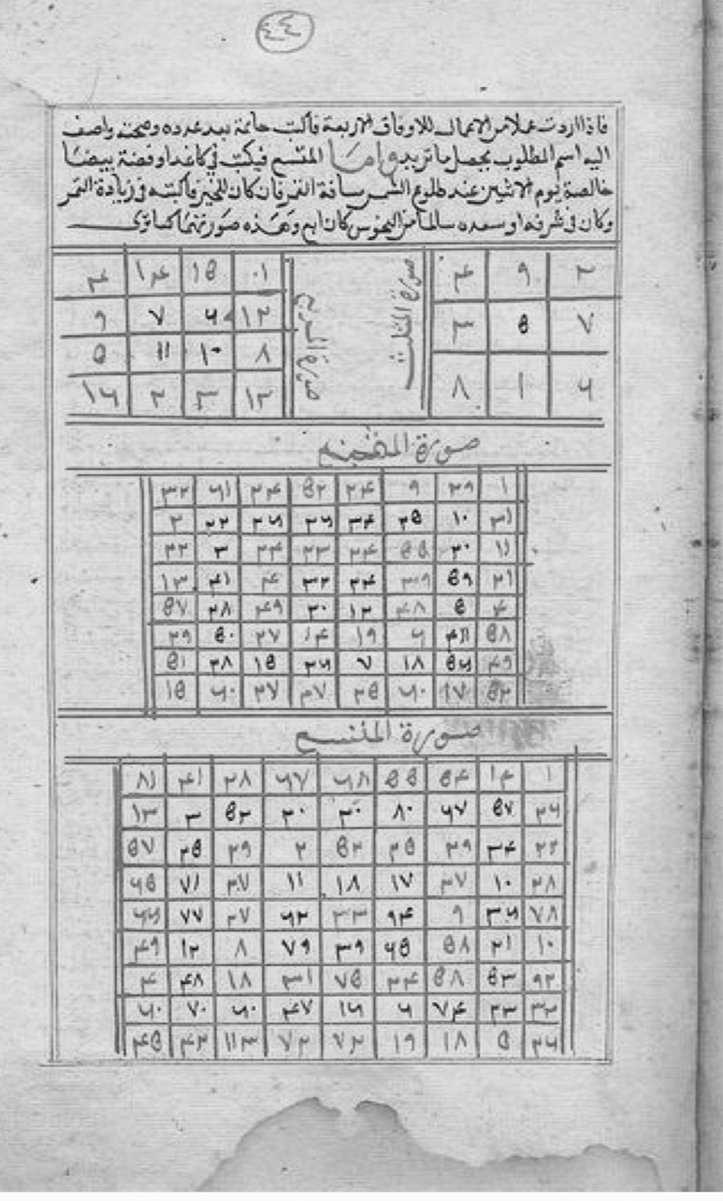 ٤٤
فاذا اردت عملا من الاعمال للاوفاق الاربعة فاكتب خاتمة بعدد عدده وصحته واضف
اليه اسم المطلوب يحصل ما تريد واما المتسع فيكتب في كاغد او فضة بيضا
خالصة يوم الاثنين عند طلوع الشمس القمر فان كان للخير فاكتبه في زيادة القمر
وكان في شرفه او سعده سالما من النحوس كان اتم وهذه صورتهما كما ترى
صورة المثلث
٢ ٩ ٤
٧ ٥ ٣
٦ ١ ٨
صورة المربع
١ ١٥ ١٤ ٤
١٢ ٦ ٧ ٩
٨ ١٠ ١١ ٥
١٣ ٣ ٢ ١٦
صورة
١ ٢٩ ٩ ٢٤ ٥٢ ٢٤ ٦١ ٣٢
٣١ ١٠ ٢٥ ٣٤ ٢٦ ٢٦ ٢٢ ٢
١١ ٢٠ ٥٥ ٢٤ ٢٣ ٢٤ ٣ ٢٢
٢١ ٥٩ ٣٩ ٢٤ ٣٢ ٤ ٤١ ١٣
٤ ٥ ٤٨ ١٢ ٣٠ ٤٩ ٢٨ ٥٧
٥٨ ٦ ١٩ ١٤ ٢٧ ٥٠ ٢٩
٤٩ ٥٦ ١٨ ٧ ٢٦ ١٥ ٣٨ ٥١
٥٢ ١٧ ٦٠ ٢٥ ٣٧ ٢٧ ٦٠ ١٥
صورة المتسع
١ ١٤ ٥٤ ٥٥ ٦٨ ٦٧ ٢٨ ٤١ ٨١
٢٦ ٥٧ ٦٧ ٨٠ ٢٠ ٢٠ ٥٢ ٣ ١٣
٢٢ ٣٤ ٢٩ ٢٥ ٥٢ ٢ ٢٩ ٢٥ ٥٧
٢٨ ١٠ ٣٧ ١٧ ١٨ ١١ ٢٧ ٧١ ٦٥
٧٨ ٣٦ ٩ ٩٤ ٣٣ ٦٢ ٢٧ ٧٧ ٦٦
١٠ ٢١ ٥٨ ٦٥ ٣٩ ٧٩ ٨ ١٢ ٤٩
٩٢ ٥٣ ٥٨ ٢٤ ٧٥ ٣١ ١٨ ٤٨ ٤
٣٢ ٢٣ ٧٤ ٦ ١٦ ٤٧ ٦٠ ٧٠ ٦٠
٢٦ ٥ ١٨ ١٩ ٧٢ ٧٢ ١١٣ ٤٣ ٤٥